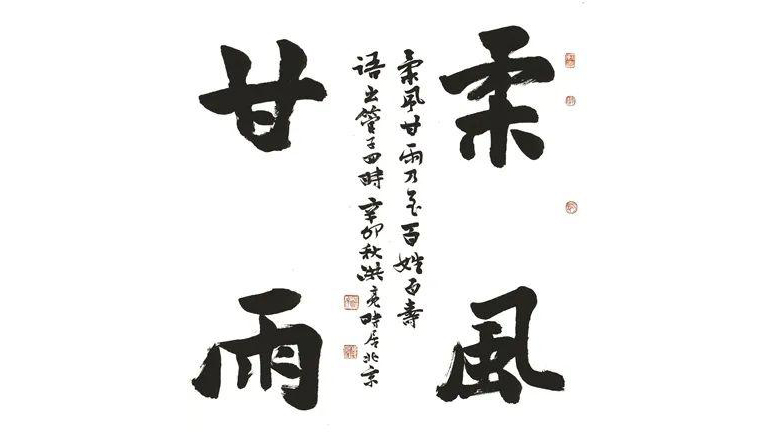 柔風
甘雨
柔風甘雨乃至百姓百壽
語出管子四時辛卯秋洪亮時居北京